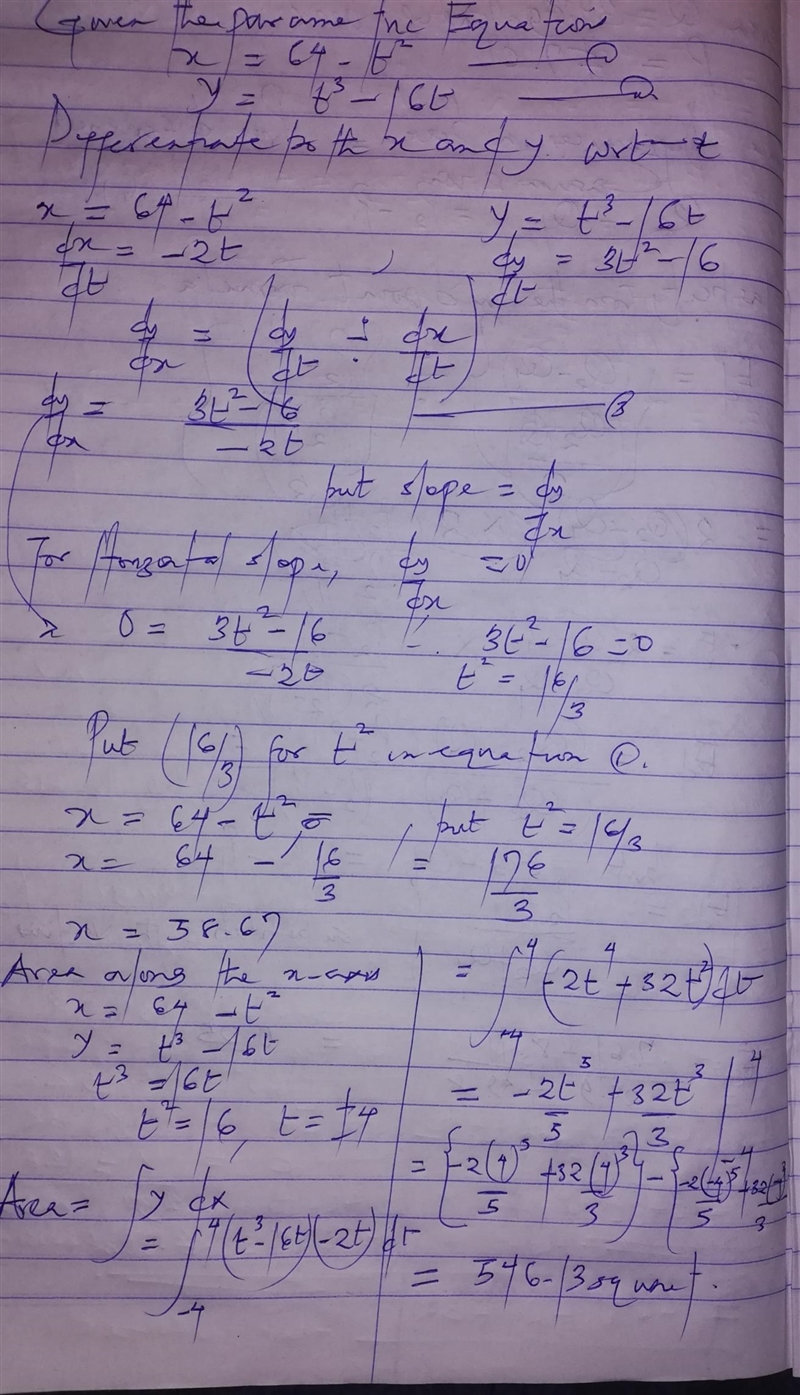 Given the parametric Equation
x = 64 - t² ——— ①
y = t³ - 16t ——— ②
Differentiate both x and y wrt t
x = 64 - t² y = t³ - 16t
dx/dt = -2t , dy/dt = 3t² - 16
dy/dx = (dy/dt ÷ dx/dt)
dy/dx = (3t² - 16)/(-2t) ——— ③
put slope = dy/dx
For Horizontal slope, dy/dx = 0
0 = (3t² - 16)/(-2t) ∴ 3t² - 16 = 0
t² = 16/3
Put (16/3) for t² in equation ①.
x = 64 - t² = , put t² = 16/3
x = 64 - 16/3 = 176/3
x = 58.67
Area along the x-axis
x = 64 - t²
y = t³ - 16t
t³ = 16t
t² = 16, t = ±4
Area = ∫ y dx
= ∫₋₄⁴ (t³ - 16t)(-2t) dt
= ∫₋₄⁴ (-2t⁴ + 32t²) dt
= -2t⁵/5 + 32t³/3 |⁴
= {-2(4)⁵/5 + 32(4)³/3} - {-2(-4)⁵/5 + 32(-4)³/3
= 546.13 square